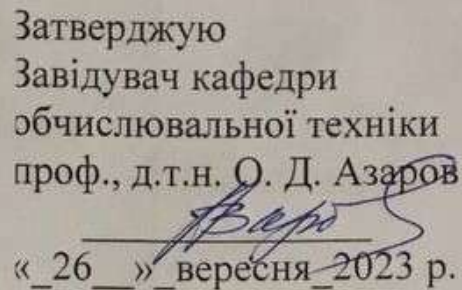 Затверджую
Завідувач кафедри
обчислювальної техніки
проф., д.т.н. О. Д. Азаров
«_26__»_вересня_2023 р.